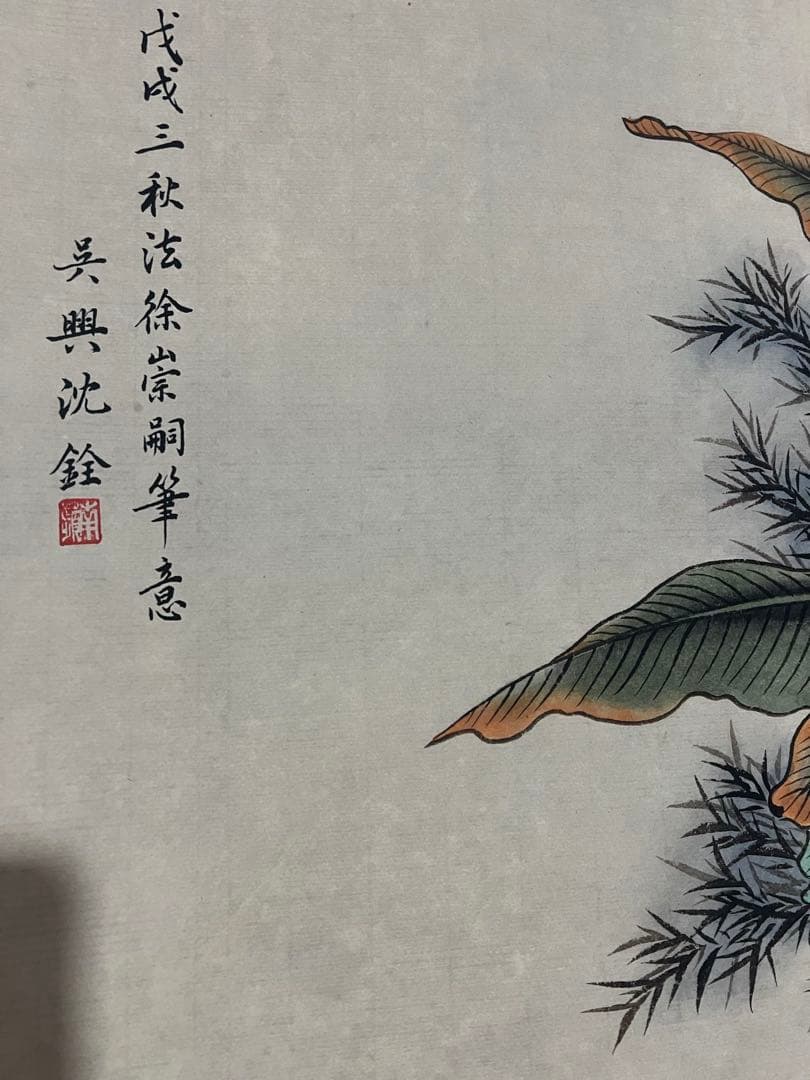 戊戌三秋法徐崇嗣筆意
吳興沈銓